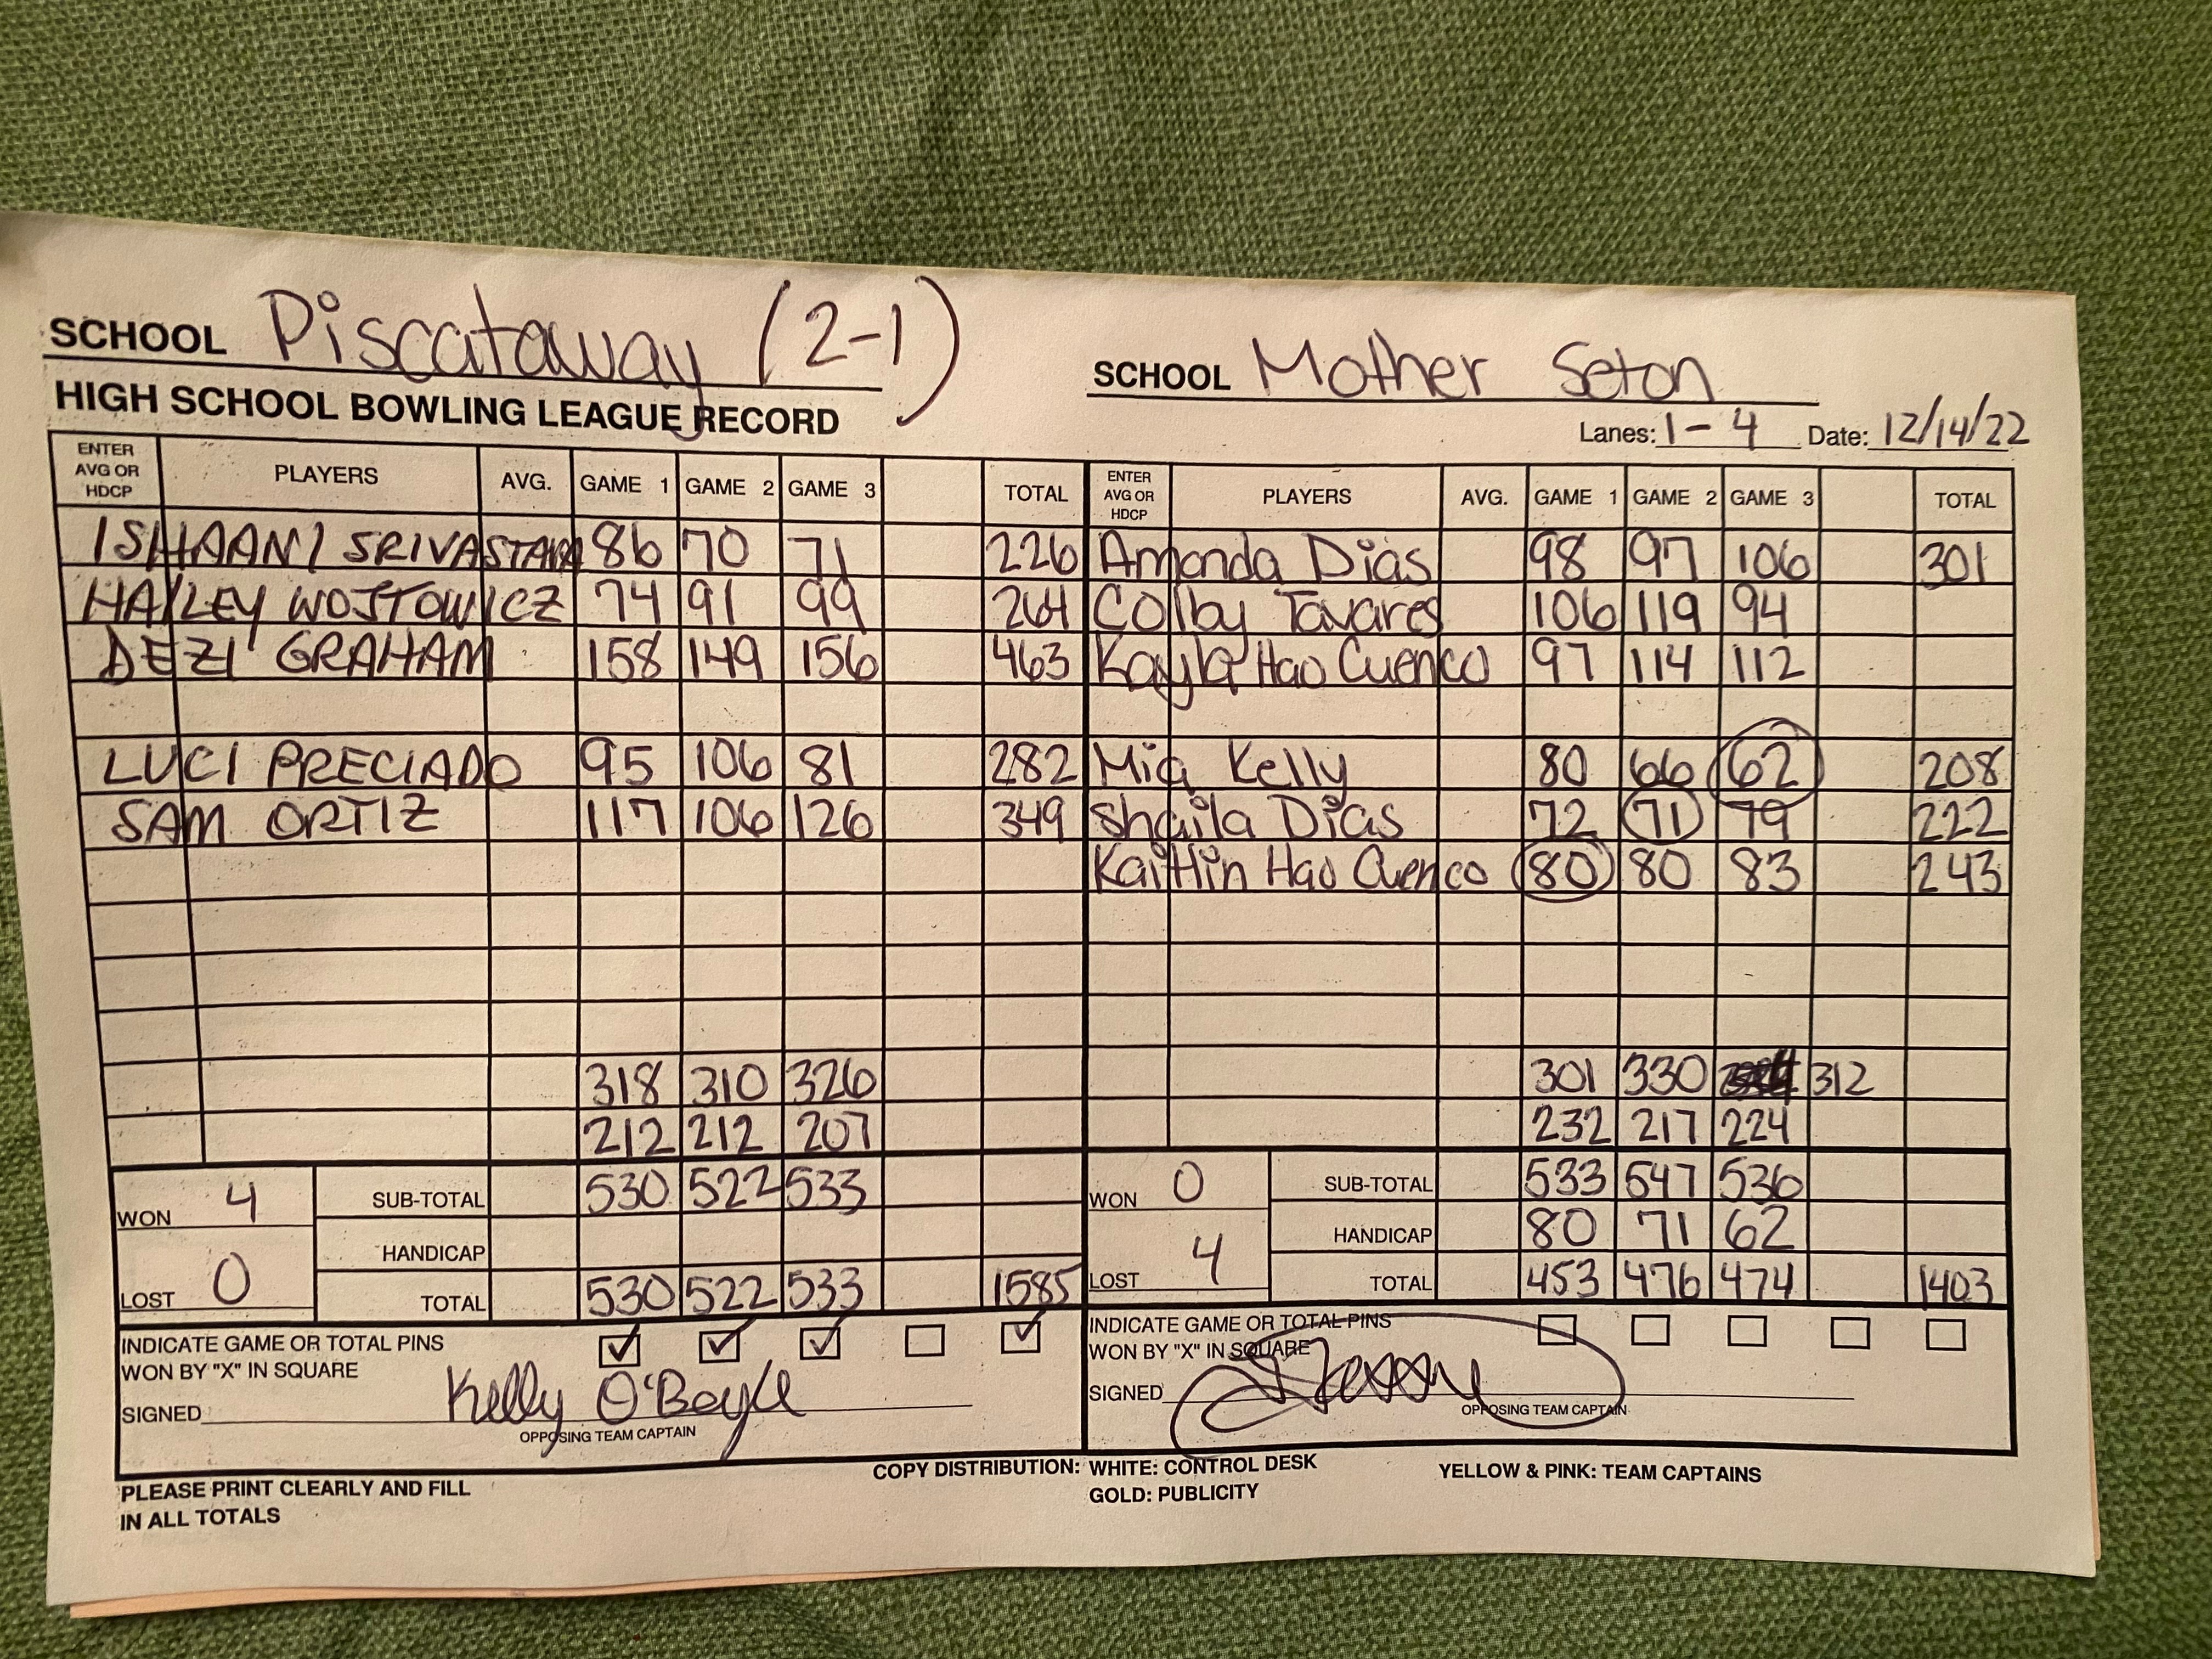 SCHOOL Piscataway (2-1)
SCHOOL Mother Seton
HIGH SCHOOL BOWLING LEAGUE RECORD
Lanes: 1-4 Date: 12/14/22
ENTER AVG OR HDCP PLAYERS AVG. GAME 1 GAME 2 GAME 3 TOTAL ENTER AVG OR HDCP PLAYERS AVG. GAME 1 GAME 2 GAME 3 TOTAL
ISHAANI SRIVASTAVA 86 70 71 226 Amanda Dias 98 97 106 301
HAILEY WOJTOWICZ 74 91 99 264 Colby Tavares 106 119 94
DEZI GRAHAM 158 149 156 463 Kayla Hao Cuenco 97 114 112
LUCI PRECIADO 95 106 81 282 Mia Kelly 80 66 62 208
SAM ORTIZ 117 106 126 349 Shaila Dias 72 71 79 222
Kaitlin Hao Cuenco 80 80 83 243
318 310 326 301 330 312
212 212 207 232 217 224
WON 4 SUB-TOTAL 530 522 533 WON 0 SUB-TOTAL 533 547 536
HANDICAP HANDICAP 80 71 62
LOST 0 TOTAL 530 522 533 1585 LOST 4 TOTAL 453 476 474 1403
INDICATE GAME OR TOTAL PINS
WON BY "X" IN SQUARE
SIGNED Kelly O'Boyle
OPPOSING TEAM CAPTAIN
INDICATE GAME OR TOTAL PINS
WON BY "X" IN SQUARE
SIGNED
OPPOSING TEAM CAPTAIN
PLEASE PRINT CLEARLY AND FILL
IN ALL TOTALS
COPY DISTRIBUTION: WHITE: CONTROL DESK YELLOW & PINK: TEAM CAPTAINS
GOLD: PUBLICITY